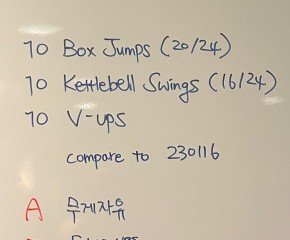 10 Box Jumps (20/24)
10 Kettlebell Swings (16/24)
10 V-ups
compare to 230116
A 무게자유